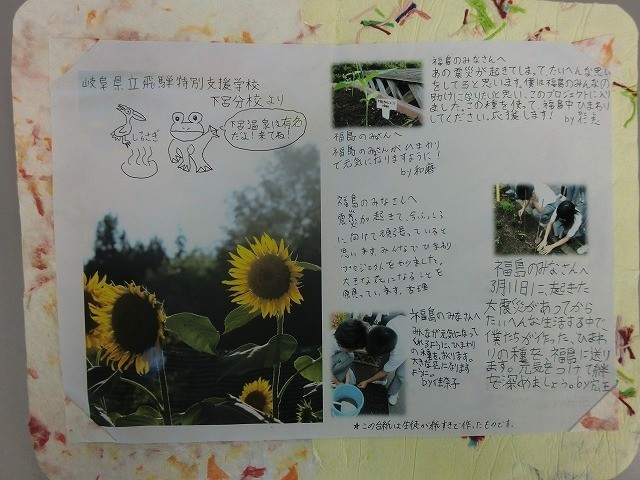 岐阜県立飛騨特別支援学校
下呂分校より
しらさぎ
下呂温泉は有名
だよ!来てね!
福島のみなさんへ
あの震災が起きてしまって、たいへんな思い
をしてると思います。僕は福島のみんなの
助けになりたいと思い、このプロジェクトに入り
ました。この種を使って、福島中ひまわり
にしてください。応援します!
福島のみなさんへ
福島のみなさんがひまわり
で元気になりますように!
福島のみなさんへ
震災が起きて、今ふっこう
に向けて頑張っていると
思います。みんなでひまわり
プロジェクトをやりました。
大きな花になることを
願っています。
福島のみなさんへ
みんなが元気になって
くれるように、ひまわり
の種を、おくります。
大きな花になります
ように。
by佳奈子
福島のみなさんへ
3月11日に、起きた
大震災があってから
たいへんな生活する中で、
僕たちが作った、ひまわ
りの種を、福島に送り
ます。元気をつけて絆
を深めましょう。
★この台紙は生徒が紙すきで作ったものです。